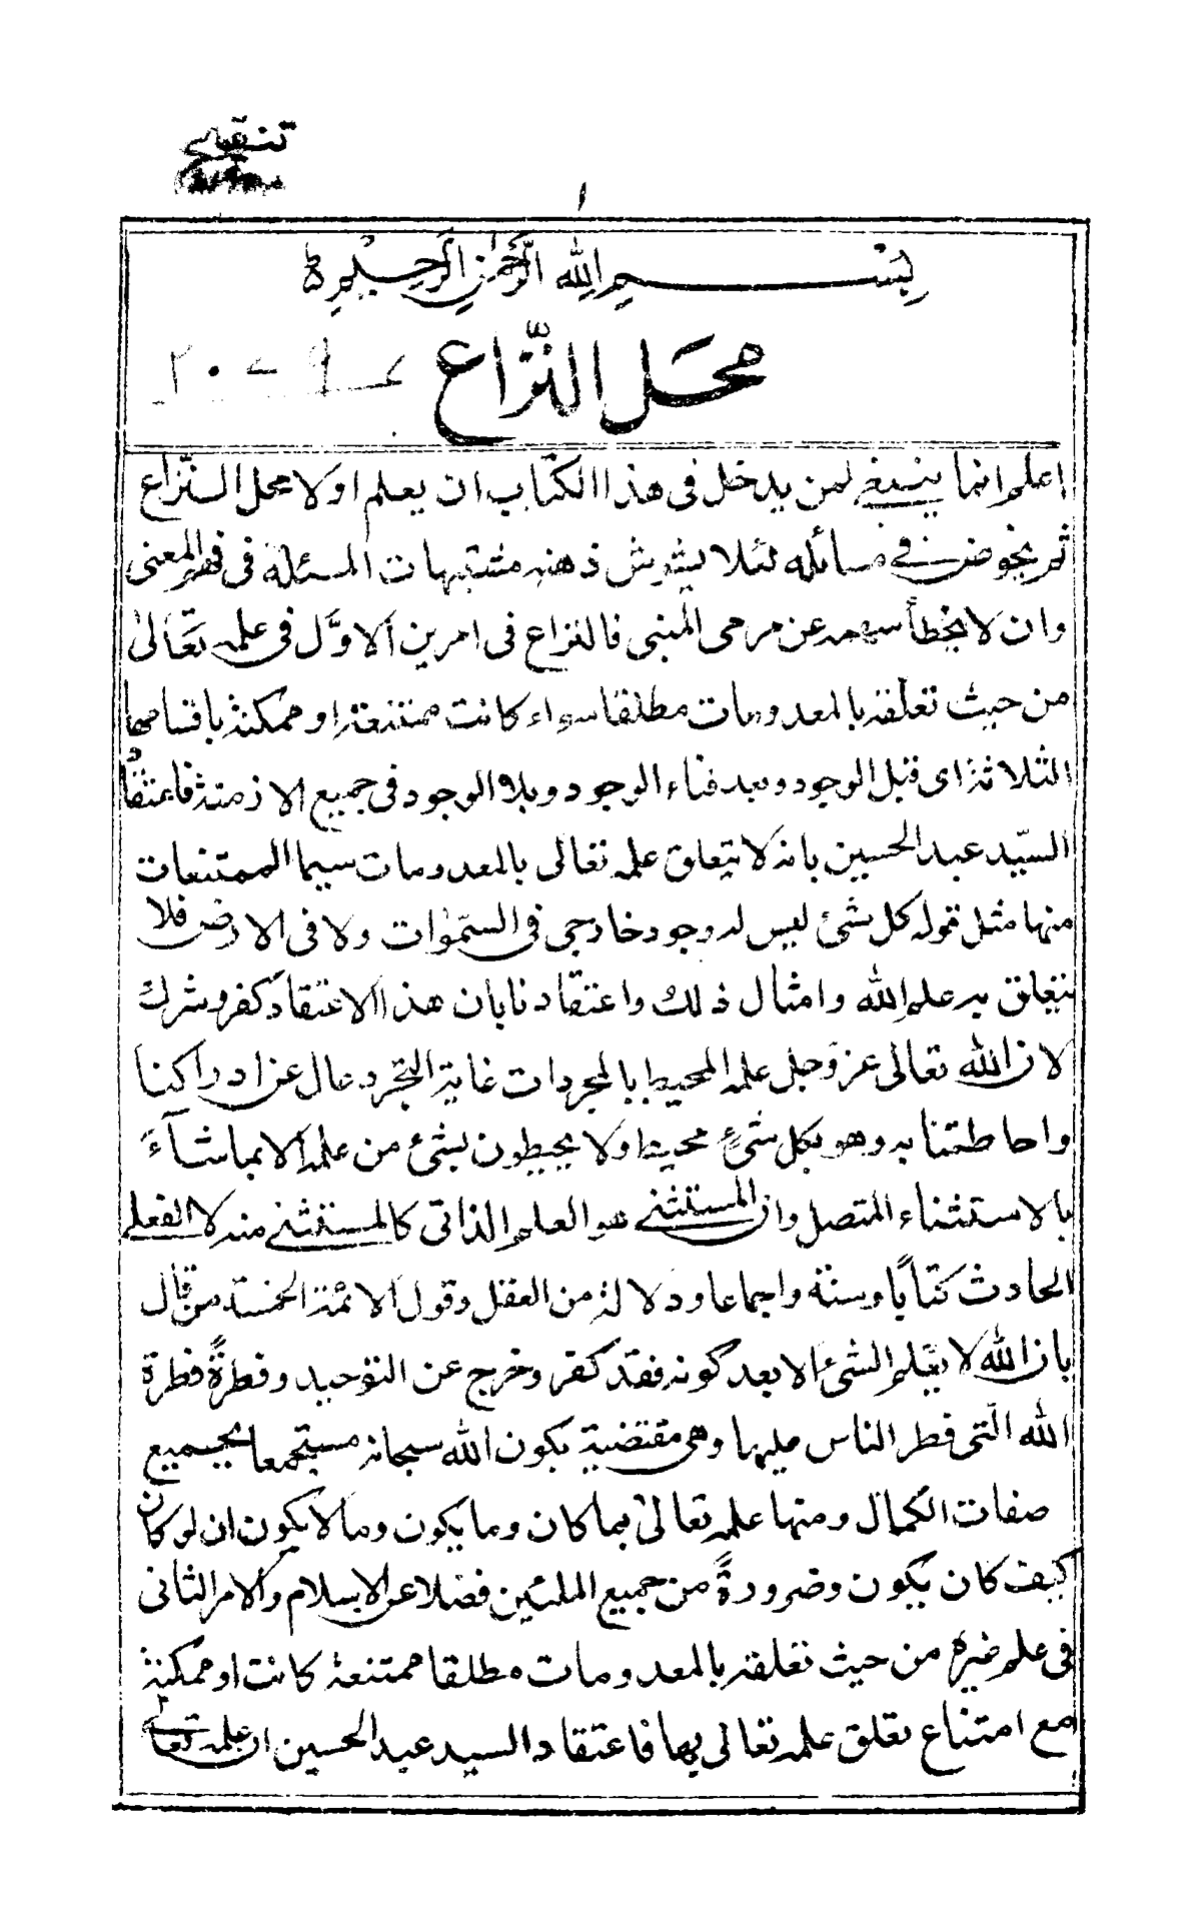 تنقيح
١
بِسْمِ اللهِ الرَّحْمٰنِ الرَّحِيْمِ
محل النّزاع
٢٠٧٩
اعلم انما ينبغي لمن يدخل فى هذا الكتاب ان يعلم اولا محل النّزاع
ثم يخوض في مسائله لئلا يشوش ذهنه مشتبهات المسئلة فى فهم المعنى
وان لا يخطأ سهمه عن مرمى المبنى فالنزاع فى امرين الاوَّل فى علمه تَعَالىٰ
من حيث تعلقه بالمعدومات مطلقا سواء كانت ممتنعة او ممكنة باقسامها
الثلاثة اى قبل الوجود وبعد فناء الوجود وبلا الوجود فى جميع الازمنة فاعتقاد
السيّد عبد الحسين بانه لا يتعلق علمه تعالى بالمعدومات سيما الممتنعات
منها مثل قوله كل شئ ليس له وجود خارجى فى السمٰوات ولا فى الارض فلا
يتعلق به علم الله وامثال ذلك واعتقادنا بان هذا الاعتقاد كفر وشرك
لان الله تعالى عز وجل علمه المحيط بالمجردات غاية التجرد عال عن ادراكنا
واحاطتنا به وهو بكل شئٍ محيط ولا يحيطون بشئ من علمه الا بما شآءَ
بالاستثناء المتصل وان المستثنى هو العلم الذاتى كالمستثنى منه لا الفعلى
الحادث كتابًا وسنة واجماعا ودلالة من العقل وقول الائمة الخمسة من قال
بان الله لا يعلم الشئ الا بعد كونه فقد كفر وخرج عن التوحيد وفطرةً فطرة
الله الّتى فطر الناس عليها وهى مقتضية بكون الله سبحانه مستجمعا بجميع
صفات الكمال ومنها علمه تعالىٰ بما كان وما يكون وما لا يكون ان لو كان
كيف كان يكون وضرورةً من جميع المليين فضلا عن الاسلام والامر الثانى
فى علم غيره من حيث تعلقه بالمعدومات مطلقا ممتنعة كانت او ممكنة
مع امتناع تعلق علمه تعالى بها فاعتقاد السيد عبد الحسين ان علمه تعالى